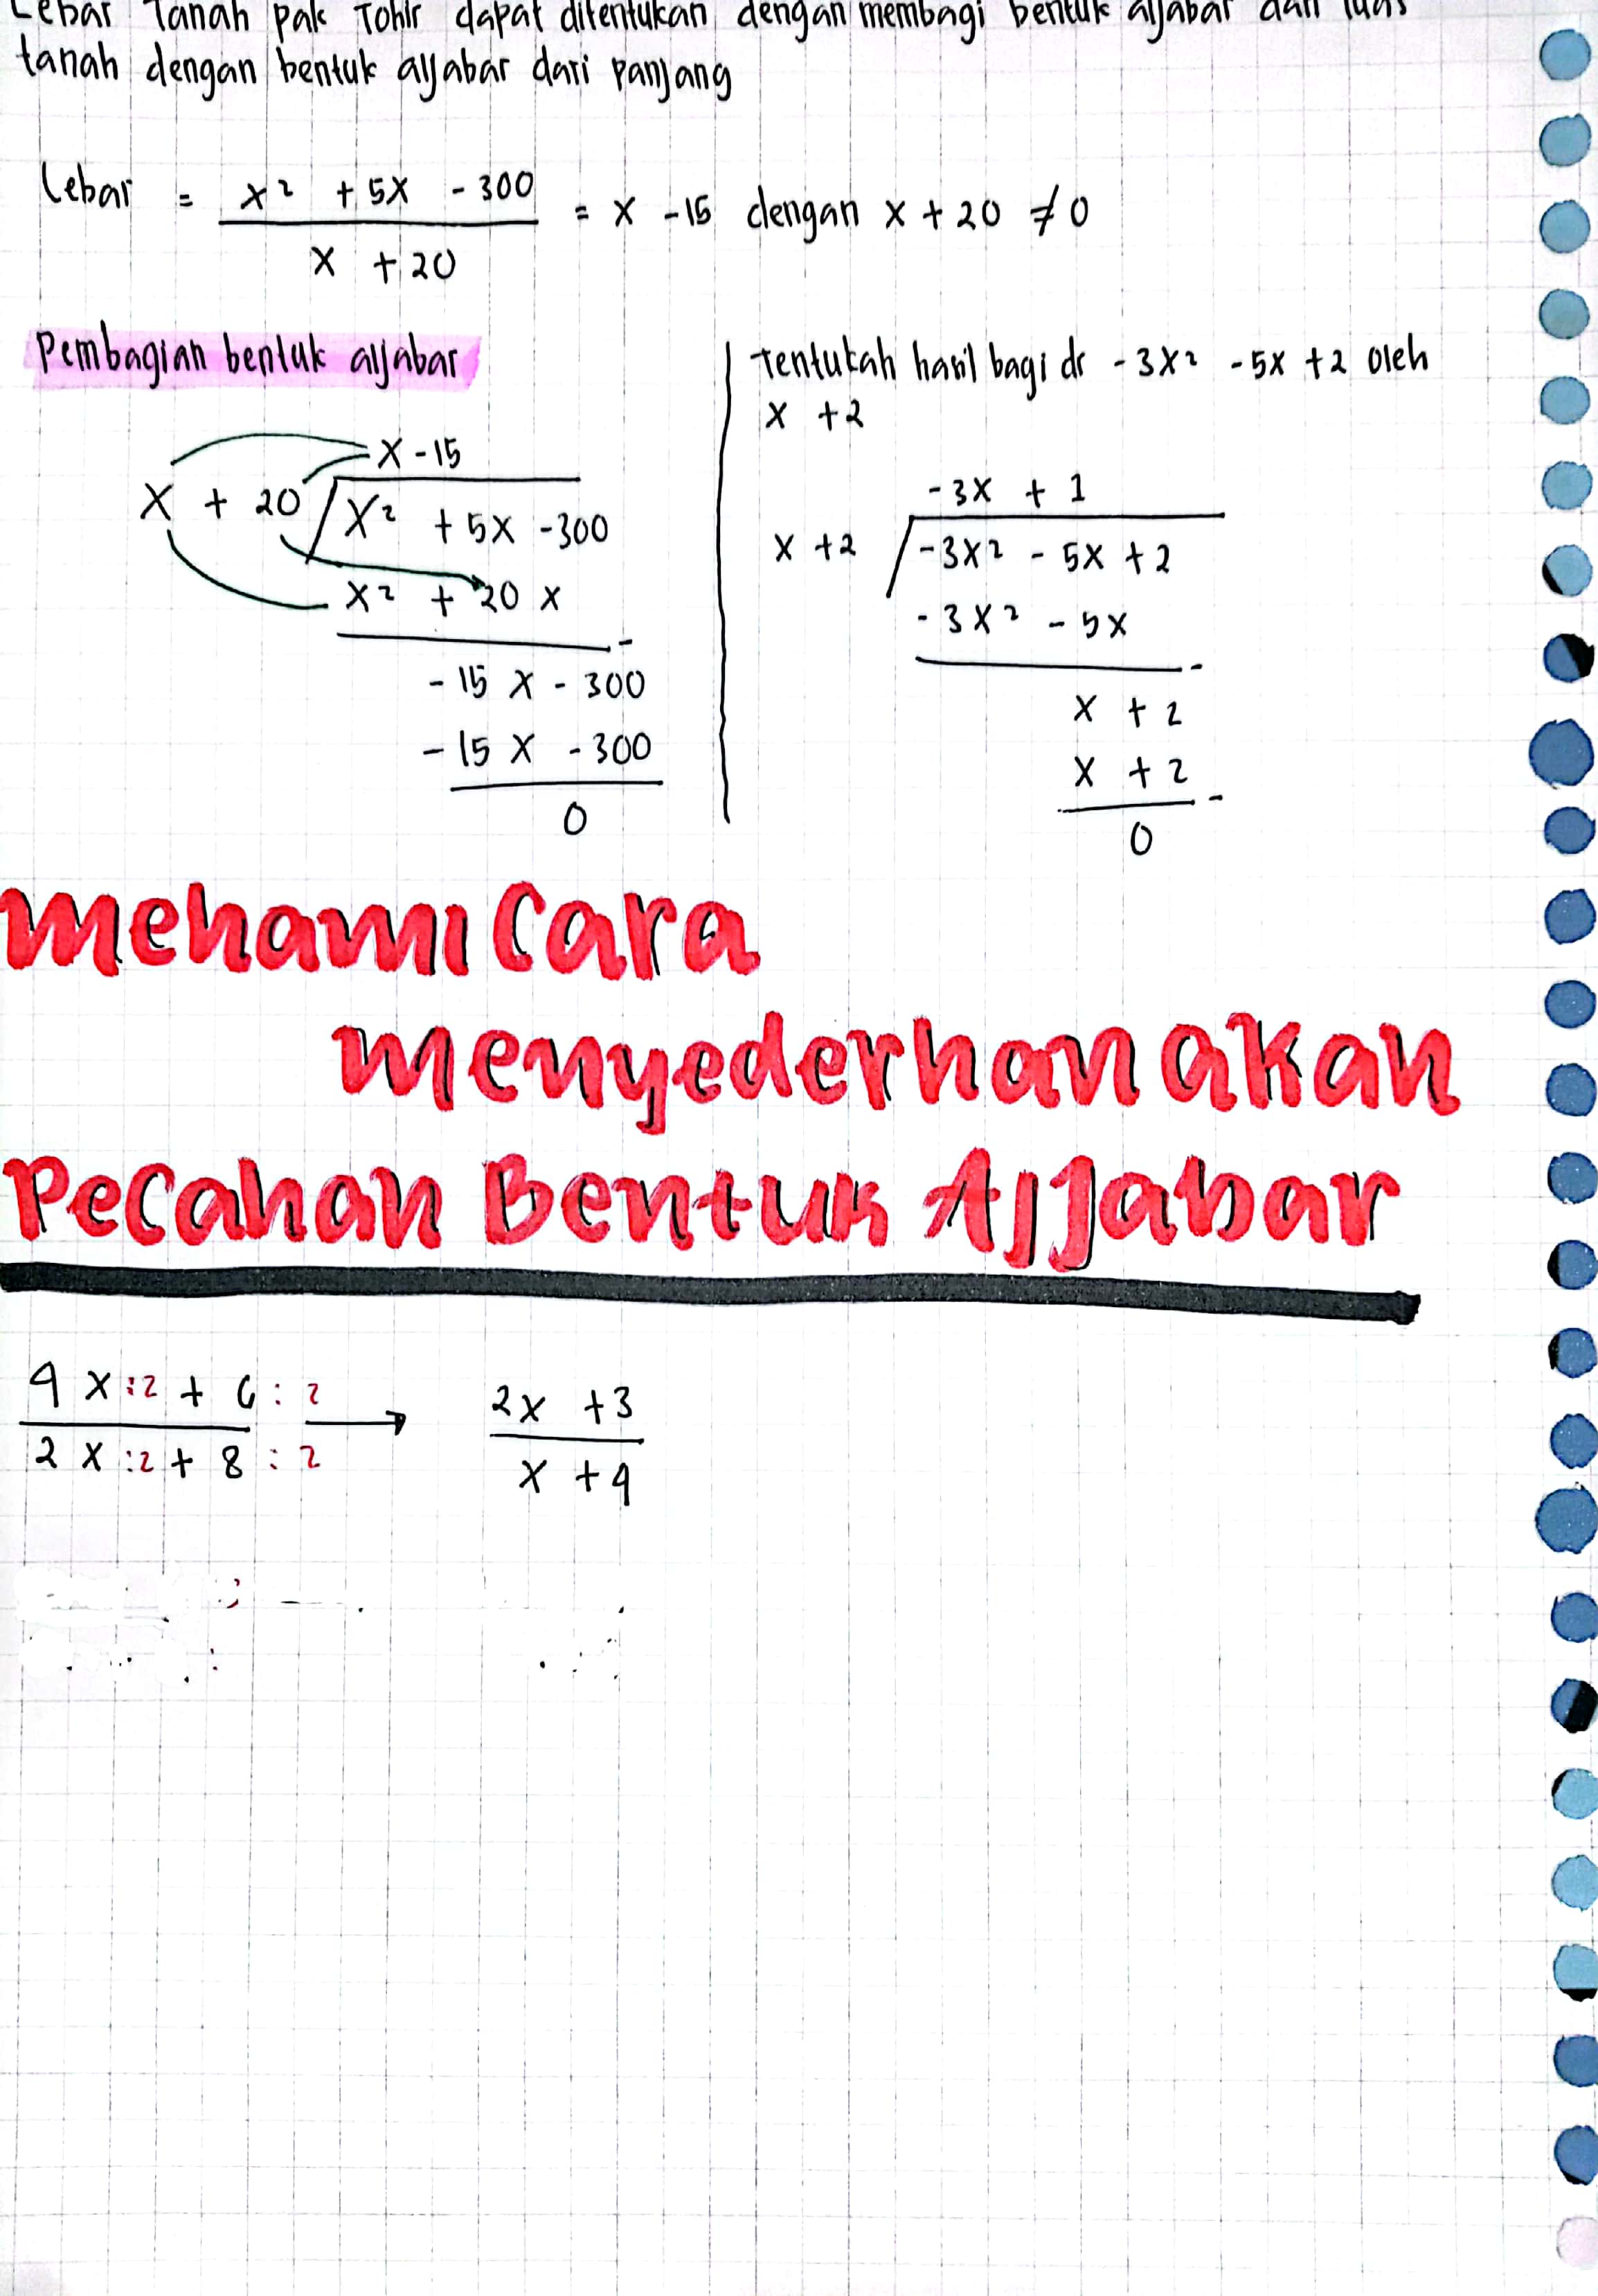 Lebar Tanah pak Tohir dapat ditentukan dengan membagi bentuk aljabar dari luas
tanah dengan bentuk aljabar dari panjang
Lebar = x² + 5x - 300 / x + 20 = x - 15 dengan x + 20 ≠ 0
Pembagian bentuk aljabar
x - 15
x + 20 / x² + 5x - 300
x² + 20 x
-
- 15 x - 300
- 15 x - 300
0
Tentukah hasil bagi dr - 3x² - 5x + 2 oleh
x + 2
- 3x + 1
x + 2 / - 3x² - 5x + 2
- 3x² - 5x
-
x + 2
x + 2
-
0
mehami Cara
menyederhanakan
Pecahan Bentuk Aljabar
4 x :2 + 6 : 2 → 2x + 3
2 x :2 + 8 : 2 x + 4